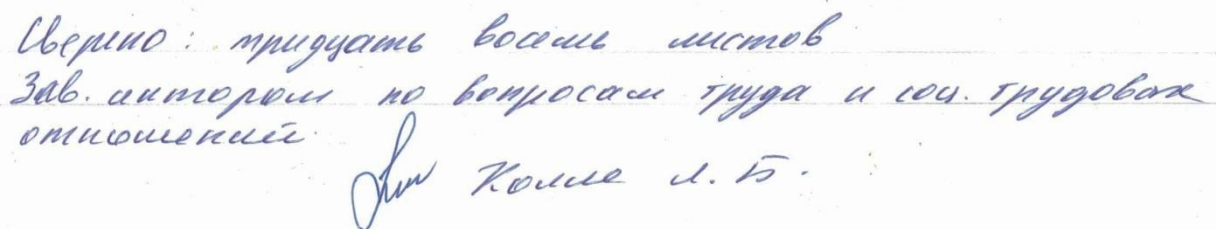 Сверено: тридцать восемь листов
Зав. сектором по вопросам труда и соц. трудовых
отношений
Колле Л. Б.